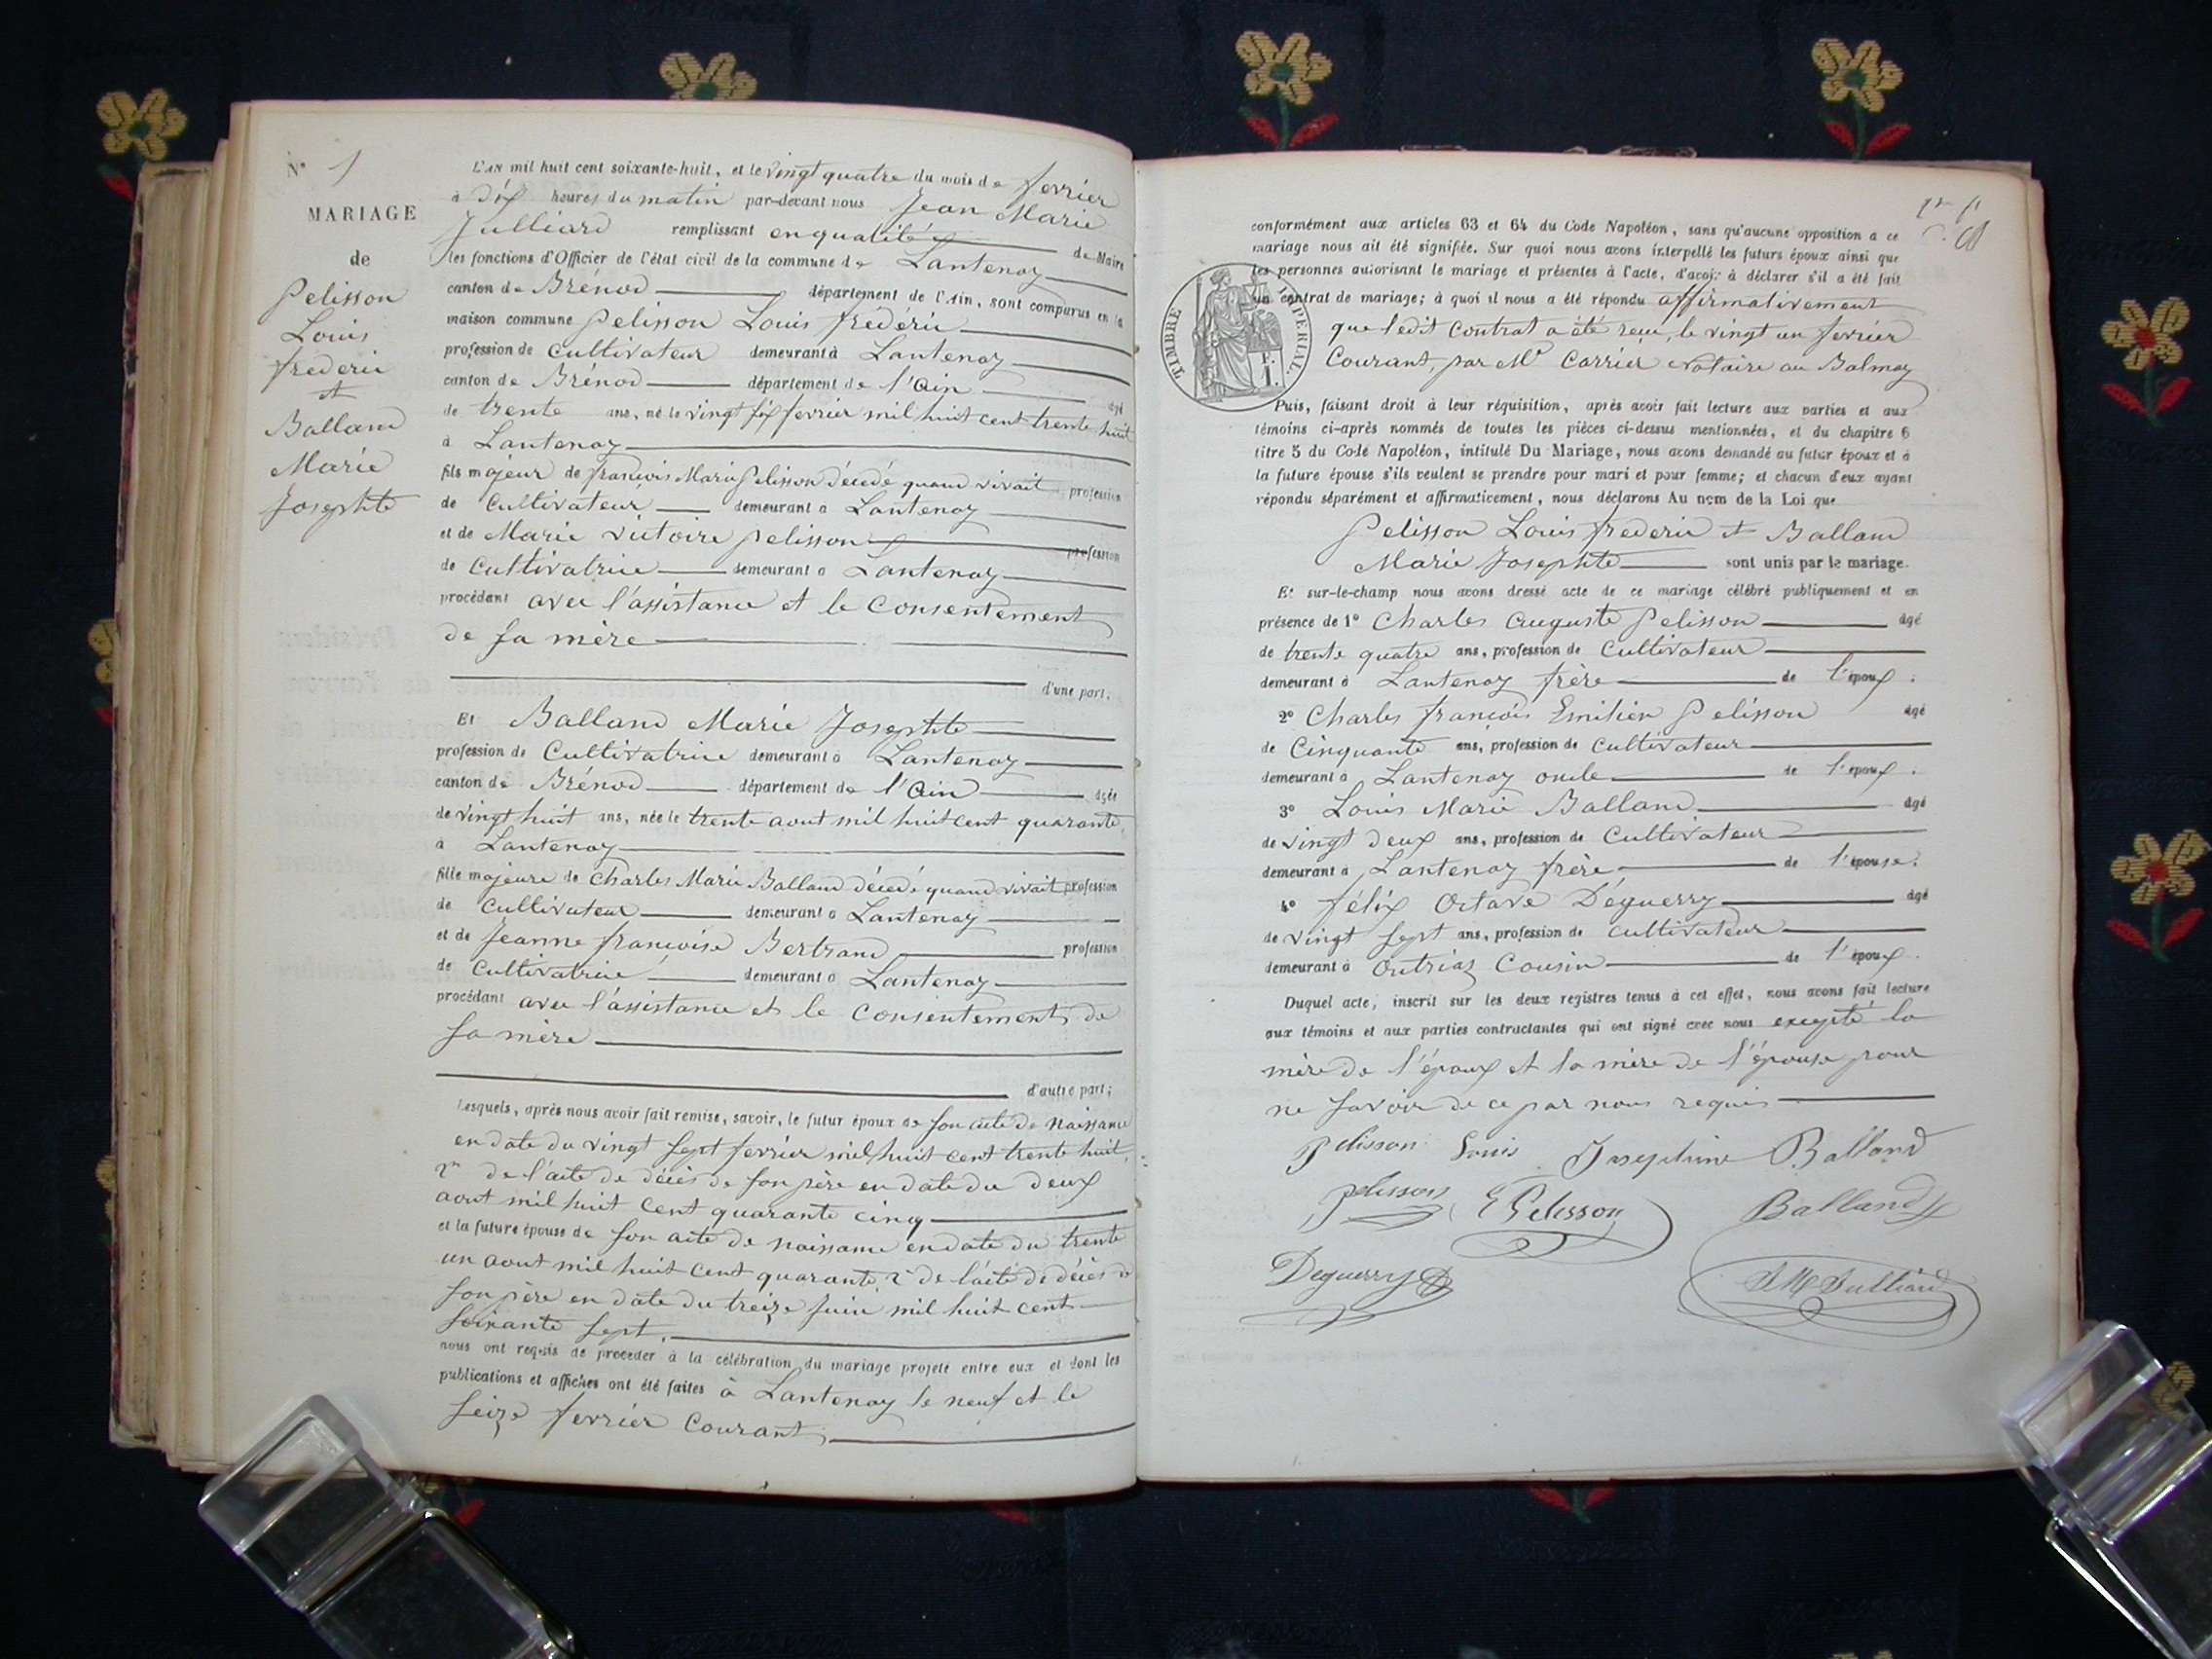 N° 1
MARIAGE
de
Pelisson
Louis
frederic
et
Balland
Marie
Josephte
L'AN mil huit cent soixante-huit, et le vingt quatre du mois de fevrier
à dix heures du matin par-devant nous Jean Marie
Julliard remplissant en qualité de Maire
les fonctions d'Officier de l'état civil de la commune de Lantenay
canton de Brénod département de l'Ain, sont comparus en la
maison commune Pelisson Louis frédéric
profession de cultivateur demeurant à Lantenay
canton de Brénod département de l'ain agé
de trente ans, né le vingt six fevrier mil huit cent trente huit
à Lantenay
fils majeur de françois Marie Pelisson décédé quand vivait profession
de cultivateur demeurant à Lantenay
et de Marie Victoire Pelisson profession
de cultivatrice demeurant à Lantenay
procédant avec l'assistance et le consentement
de sa mère
d'une part;
Et Balland Marie Josephte
profession de cultivatrice demeurant à Lantenay
canton de Brénod département de l'ain agée
de vingt huit ans, née le trente aout mil huit cent quarante
à Lantenay
fille majeure de Charles Marie Balland décédé quand vivait profession
de cultivateur demeurant à Lantenay
et de Jeanne françoise Bertrand profession
de cultivatrice demeurant à Lantenay
procédant avec l'assistance et le consentement de
sa mère
d'autre part;
Lesquels, après nous avoir fait remise, savoir, le futur époux de son acte de naissance
en date du vingt sept fevrier mil huit cent trente huit,
2° de l'acte de décès de son père en date du deux
aout mil huit cent quarante cinq
et la future épouse de son acte de naissance en date du trente
un aout mil huit cent quarante, 2° de l'acte de décès de
son père en date du treize juin mil huit cent
soixante sept,
nous ont requis de procéder à la célébration du mariage projeté entre eux et dont les
publications et affiches ont été faites à Lantenay le neuf et le
seize fevrier courant,
conformément aux articles 63 et 64 du Code Napoléon, sans qu'aucune opposition à ce
mariage nous ait été signifiée. Sur quoi nous avons interpellé les futurs époux ainsi que
les personnes autorisant le mariage et présentes à l'acte, d'avoir à déclarer s'il a été fait
un contrat de mariage; à quoi il nous a été répondu affirmativement
que ledit contrat a été reçu, le vingt un fevrier
courant, par Me Carrier Notaire au Balmay
TIMBRE IMPERIAL.
Puis, faisant droit à leur réquisition, après avoir fait lecture aux parties et aux
témoins ci-après nommés de toutes les pièces ci-dessus mentionnées, et du chapitre 6
titre 5 du Code Napoléon, intitulé Du Mariage, nous avons demandé au futur époux et à
la future épouse s'ils veulent se prendre pour mari et pour femme; et chacun d'eux ayant
répondu séparément et affirmativement, nous déclarons Au nom de la Loi que
Pelisson Louis frederic et Balland
Marie Josephte sont unis par le mariage.
Et sur-le-champ nous avons dressé acte de ce mariage célébré publiquement et en
présence de 1° Charles auguste Pelisson agé
de trente quatre ans, profession de cultivateur
demeurant à Lantenay frère de l'époux.
2° Charles françois Emilien Pelisson agé
de cinquante ans, profession de cultivateur
demeurant à Lantenay oncle de l'époux.
3° Louis Marie Balland agé
de vingt deux ans, profession de cultivateur
demeurant à Lantenay frère de l'épouse.
4° félix Octave Déguerry agé
de vingt sept ans, profession de cultivateur
demeurant à Outriaz cousin de l'époux.
Duquel acte, inscrit sur les deux registres tenus à cet effet, nous avons fait lecture
aux témoins et aux parties contractantes qui ont signé avec nous excepté la
mère de l'époux et la mère de l'épouse pour
ne savoir de ce par nous requis
Pelisson Louis Josephine Balland
Pelisson E Pelisson Balland
Deguerry JM Julliard